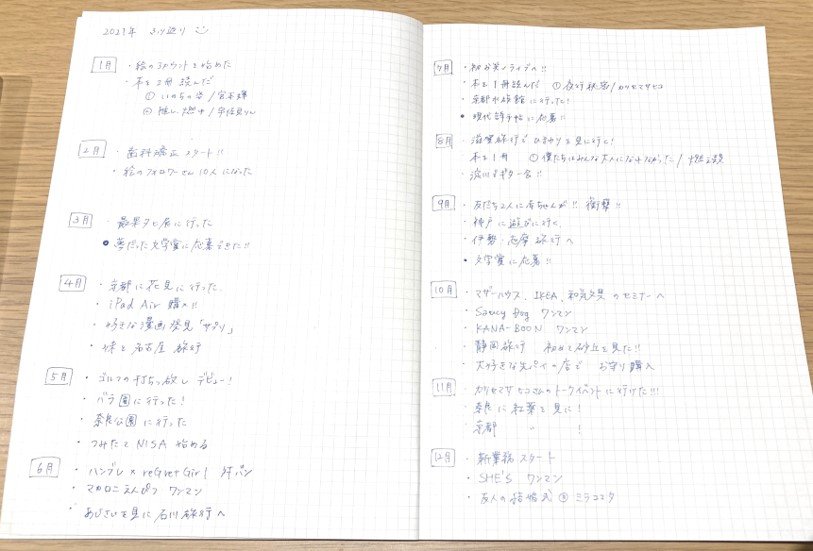 2021年 ふり返り
1月
・絵のアカウントを始めた
・本を2冊読んだ
① いのちの
② 推し、燃ゆ / 宇佐見りん
2月
・歯科矯正 スタート!!
・絵のフォロワーさん 10人になった
3月
・最果タヒ展に行った
・夢だった文学賞に応募できた!!
4月
・京都に花見に行った
・iPad Air 購入!!
・好きな漫画発見「サプリ」
・妹と名古屋旅行
5月
・ゴルフの打ちっ放し デビュー!
・バラ園に行った!
・奈良公園に行った
・つみたてNISA 始める
6月
・ハンブレ × reGretGirl 対バン
・マカロニえんぴつ ワンマン
・あじさいを見に 石川旅行へ
7月
・初お笑いライブへ!!
・本を1冊読んだ ① 夜行秘密 / カツセマサヒコ
・京都水族館に行った!
・現代詩手帖に応募!!
8月
・滋賀旅行でひまわりを見に行く!
・本を1冊 ① 僕たちはみんな大人になれなかった / 燃え殻
9月
・友だち2人に赤ちゃんが!! 衝撃!!
・神戸に遊びに行く
・伊勢・志摩旅行へ
・文学賞に応募!!
10月
・マザーハウス、IKEA、のセミナーへ
・Saucy Dog ワンマン
・KANA-BOON ワンマン
・静岡旅行 初めて砂丘を見た!!
・大好きな先パイの店で お守り購入
11月
・カツセマサヒコさんのトークイベントに行けた!!!
・奈良に紅葉を見に!
・京都 〃 !
12月
・新業務スタート
・SHE'S ワンマン
・友人の結婚式 @ ミラコスタ